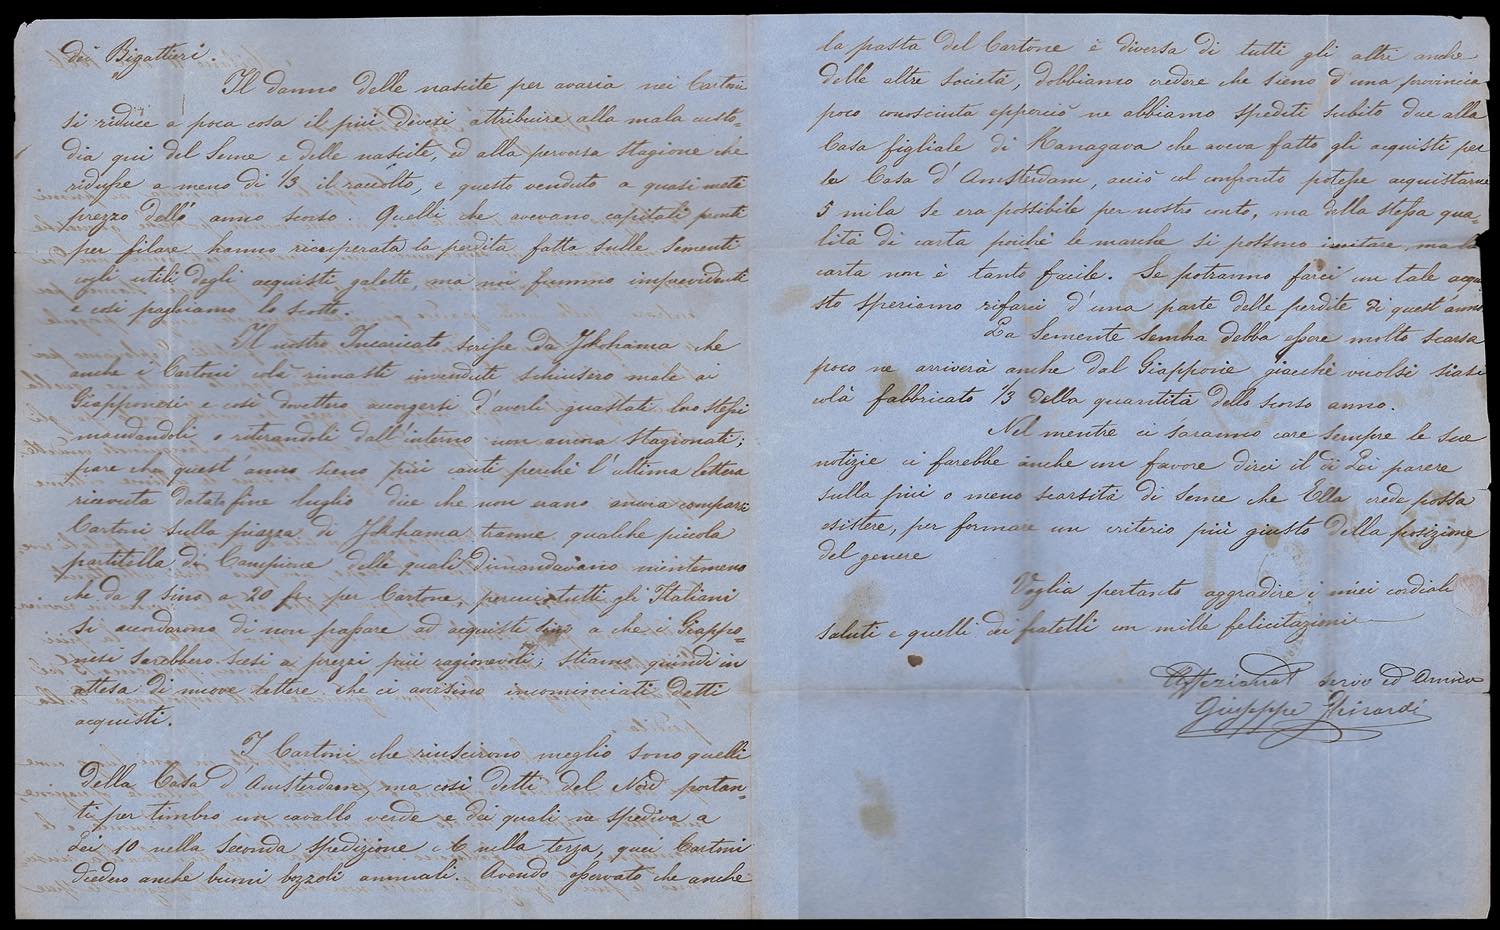 dei Bigattieri.
Il danno delle nascite per avaria nei Cartoni
si riduce a poca cosa il più devesi attribuire alla mala custo-
dia qui del Seme e delle nascite, ed alla perversa Stagione che
ridusse a meno di 1/3 il raccolto, e questo venduto a quasi metà
prezzo dello anno scorso. Quelli che avevano capitali pronti
per filare hanno ricuperata la perdita fatta sulle Sementi
cogli utili degli acquisti galette, ma noi fummo imprevidenti
e così paghiamo lo scotto.
Il nostro Incaricato scrisse da Jokohama che
anche i Cartoni colà rimasti invenduti schiusero male ai
Giapponesi e così dovettero accorgersi d'averli guastati loro stessi
mandandoli o ritirandoli dall'interno non ancora stagionati;
pare che quest'anno sieno più cauti perchè l'ultima lettera
ricevuta datata fine luglio dice che non erano ancora comparsi
Cartoni sulla piazza di Jokohama tranne qualche piccola
partitella di Campione delle quali dimandavano nientemeno
che da 9 sino a 20 fr. per Cartone, percui tutti gli Italiani
si accordarono di non passare ad acquisti sino a che i Giappo-
nesi sarebbero scesi a prezzi più ragionevoli; stiamo quindi in
attesa di nuove lettere che ci avvisino incominciati detti
acquisti.
I Cartoni che riuscirono meglio sono quelli
della Casa d'Amsterdam ma così detti del Nord portan-
ti per timbro un cavallo verde e dei quali ne spediva a
Lei 10 nella Seconda Spedizione e 6 nella terza, quei Cartoni
diedero anche buoni bozzoli annuali. Avendo osservato che anche
la pasta del Cartone è diversa di tutti gli altri anche
delle altre Società, dobbiamo credere che sieno d'una provincia
poco conosciuta epperciò ne abbiamo spediti subito due alla
Casa figliale di Kanagava che aveva fatto gli acquisti per
la Casa d'Amsterdam, acciò col confronto potesse acquistarne
5 mila se era possibile per nostro conto, ma della stessa qua-
lità di carta poichè le marche si possono imitare, ma la
carta non è tanto facile. Se potranno farci un tale acqui
sto speriamo rifarci d'una parte delle perdite di quest'anno
La Semente sembra debba essere molto scarsa
poco ne arriverà anche dal Giappone giacchè vuolsi siasi
colà fabbricato 1/3 della quantità dello scorso anno.
Nel mentre ci saranno care sempre le sue
notizie ci farebbe anche un favore dirci il di Lei parere
sulla più o meno scarsità di seme che Ella crede possa
esistere, per formare un criterio più giusto della posizione
del genere
Voglia pertanto aggradire i miei cordiali
saluti e quelli dei fratelli con mille felicitazioni
Affezionat servo ed Amico
Giuseppe Ghirardi